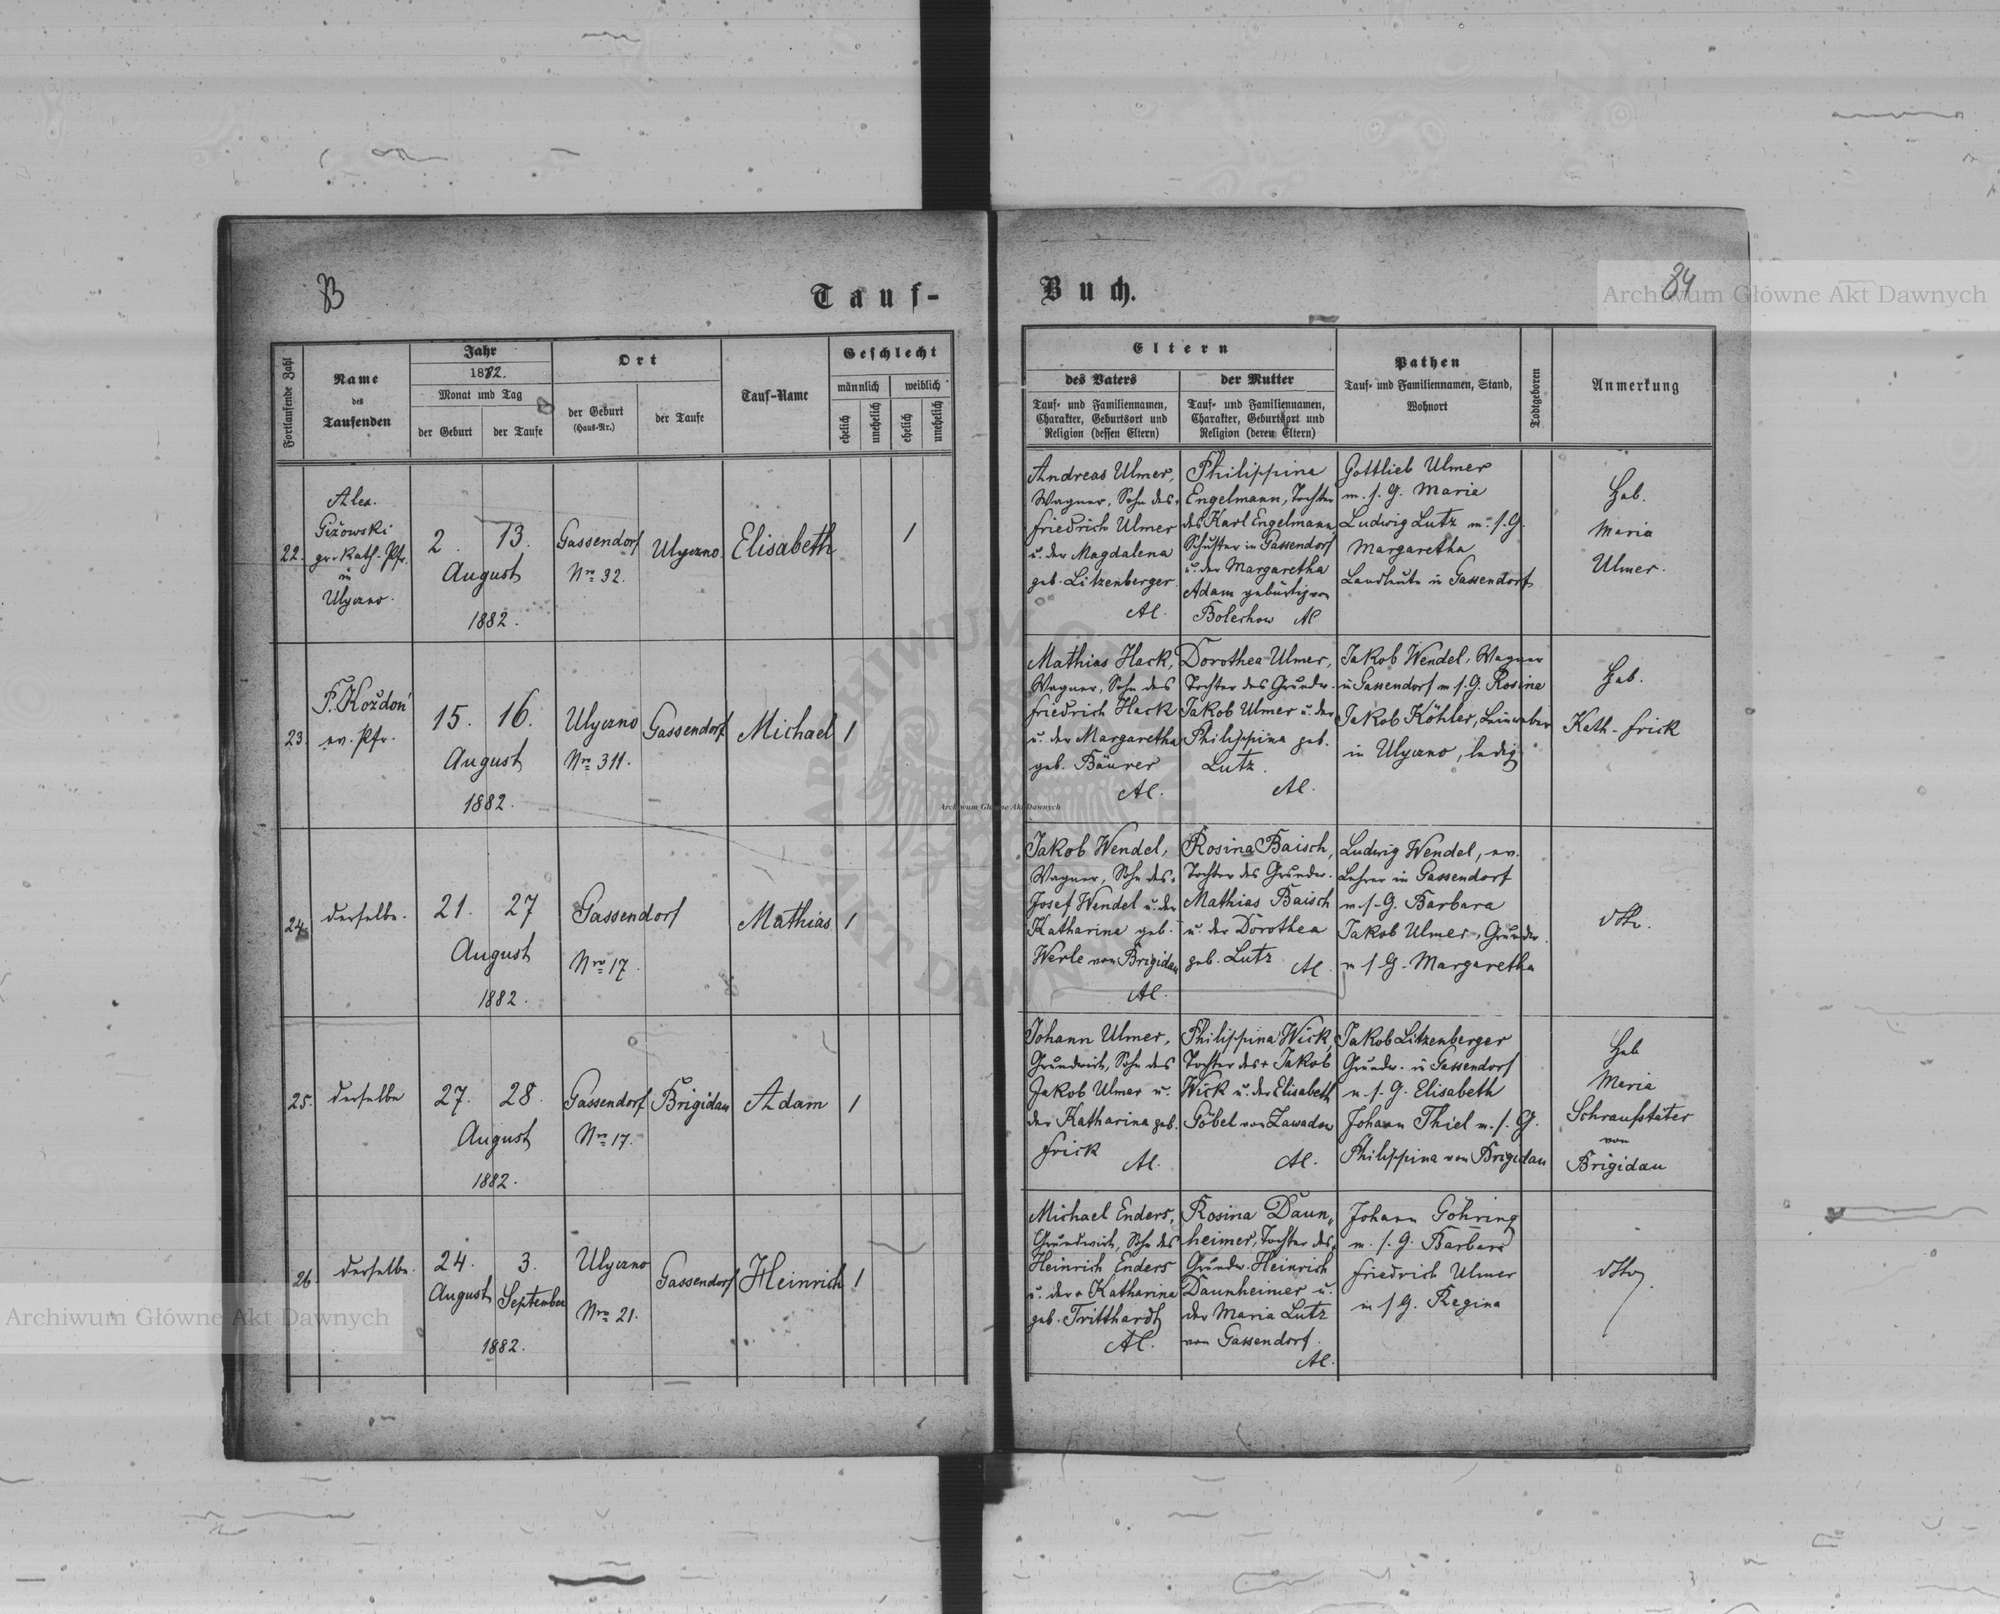 Tauf-
Buch.
84
Archiwum Główne Akt Dawnych
Fortlaufende Zahl
Name
des
Taufenden
Jahr
1882.
Monat und Tag
der Geburt
der Taufe
Ort
der Geburt
(Haus-Nr.)
der Taufe
Tauf-Name
Geschlecht
männlich
weiblich
ehelich
unehelich
ehelich
unehelich
Eltern
des Vaters
Tauf- und Familiennamen,
Charakter, Geburtsort und
Religion (dessen Eltern)
der Mutter
Tauf- und Familiennamen,
Charakter, Geburtsort und
Religion (deren Eltern)
Pathen
Tauf- und Familiennamen, Stand,
Wohnort
Todtgeboren
Anmerkung
22.
Alex.
Giżowski
gr. kath. Pfr.
in
Ulyczno.
2.
13.
August
1882.
Gassendorf
Nro 32.
Ulyczno.
Elisabeth
1
Andreas Ulmer,
Wagner, Sohn des
Friedrich Ulmer
u. der Magdalena
geb. Litzenberger.
Al.
Philippina
Engelmann, Tochter
des Karl Engelmann,
Schuster in Gassendorf
u. der Margaretha
Adam gebürtig von
Bolechow Al
Gottlieb Ulmer
m. s. G. Maria
Ludwig Lutz m. s. G.
Margaretha
Landleute in Gassendorf
Heb.
Maria
Ulmer.
23.
F. Kożdoń
ev. Pfr.
15.
16.
August
1882.
Ulyczno
Nro 311.
Gassendorf
Michael
1
Mathias Hack,
Wagner, Sohn des
Friedrich Hack
u. der Margaretha
geb. Bäurer
Al.
Dorothea Ulmer,
Tochter des Grundw.
Jakob Ulmer u. der
Philippina geb.
Lutz.
Al.
Jakob Wendel, Wagner
in Gassendorf m s. G. Rosina
Jakob Köhler, Leinweber
in Ulyczno, ledig
Heb.
Kath. Frick
24.
derselbe.
21.
27
August
1882.
Gassendorf
Nro 17.
Mathias
1
Jakob Wendel,
Wagner, Sohn des
Josef Wendel u. der
Katharina geb.
Werle von Brigidau
Al.
Rosina Baisch,
Tochter des Grundw.
Mathias Baisch
u. der Dorothea
geb. Lutz
Al.
Ludwig Wendel, ev.
Lehrer in Gassendorf
m. s. G. Barbara
Jakob Ulmer, Grundw.
m s. G. Margaretha
dtto.
25.
derselbe
27.
28.
August
1882.
Gassendorf
Nro 17.
Brigidau
Adam
1
Johann Ulmer,
Grundwirt, Sohn des
Jakob Ulmer u.
der Katharina geb.
Frick
Al.
Philippina Wick,
Tochter des + Jakob
Wick u. der Elisabeth
Göbel von Zawadow
Al.
Jakob Litzenberger
Grundw. in Gassendorf
m. s. G. Elisabeth
Johann Thiel m. s. G.
Philippina von Brigidau
Heb
Maria
Schraufstäter
von
Brigidau
26.
derselbe.
24.
3.
August
September
1882.
Ulyczno
Nro 21.
Gassendorf
Heinrich
1
Michael Enders,
Grundwirt, Sohn des
Heinrich Enders
u. der + Katharina
geb. Tritthardt
Al.
Rosina Daun-
heimer, Tochter des
Grundw. Heinrich
Daunheimer u.
der Maria Lutz
von Gassendorf.
Al.
Johann Göhring
m. s. G. Barbara
Friedrich Ulmer
m s G. Regina
dtto
Archiwum Główne Akt Dawnych
Archiwum Główne Akt Dawnych